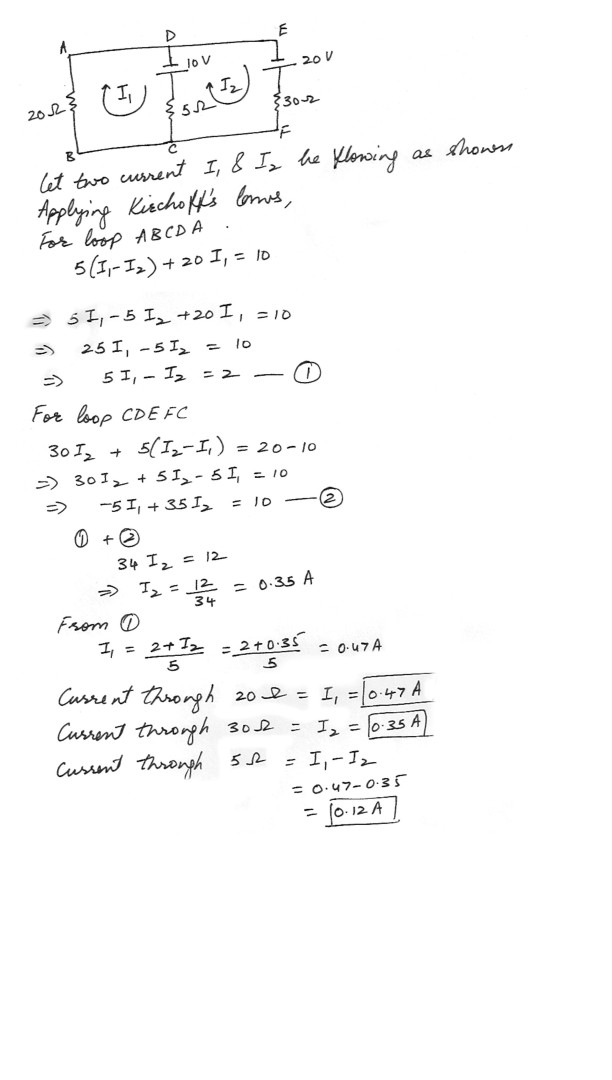 A D E
10V
20V
I₁ I₂
20Ω
5Ω
30Ω
B C F
Let two current I₁ & I₂ be flowing as shown
Applying Kirchoff's laws,
For loop ABCDA .
5(I₁-I₂) + 20I₁ = 10
⇒ 5I₁ - 5I₂ + 20I₁ = 10
⇒ 25I₁ - 5I₂ = 10
⇒ 5I₁ - I₂ = 2 — ①
For loop CDEFC
30I₂ + 5(I₂-I₁) = 20-10
⇒ 30I₂ + 5I₂ - 5I₁ = 10
⇒ -5I₁ + 35I₂ = 10 — ②
① + ②
34 I₂ = 12
⇒ I₂ = 12/34 = 0.35 A
From ①
I₁ = (2+I₂)/5 = (2+0.35)/5 = 0.47A
Current through 20Ω = I₁ = 0.47 A
Current through 30Ω = I₂ = 0.35 A
Current through 5Ω = I₁-I₂
= 0.47-0.35
= 0.12 A